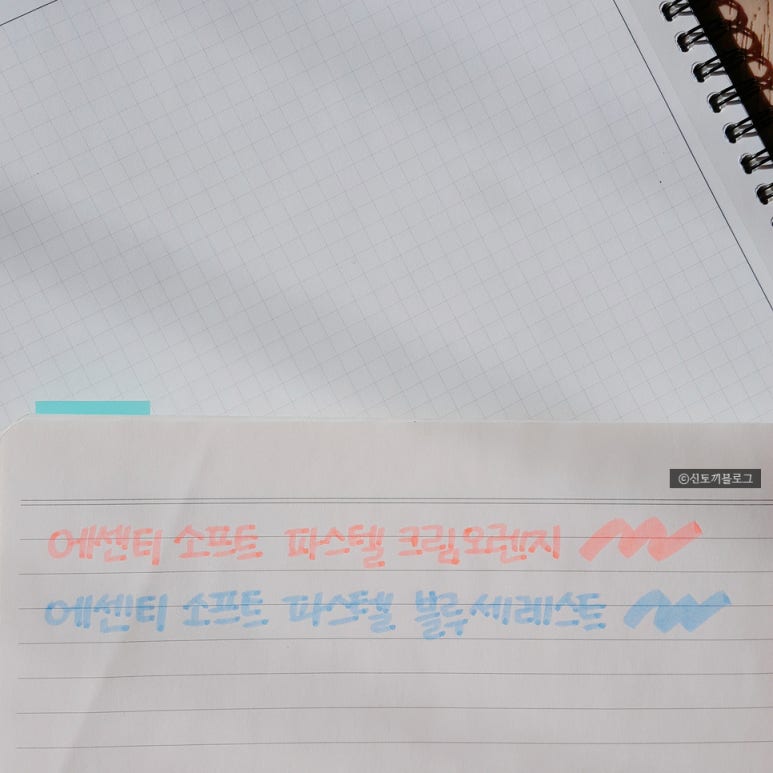 ©신토끼블로그
에센티 소프트 파스텔 크림오렌지
에센티 소프트 파스텔 블루세레스트